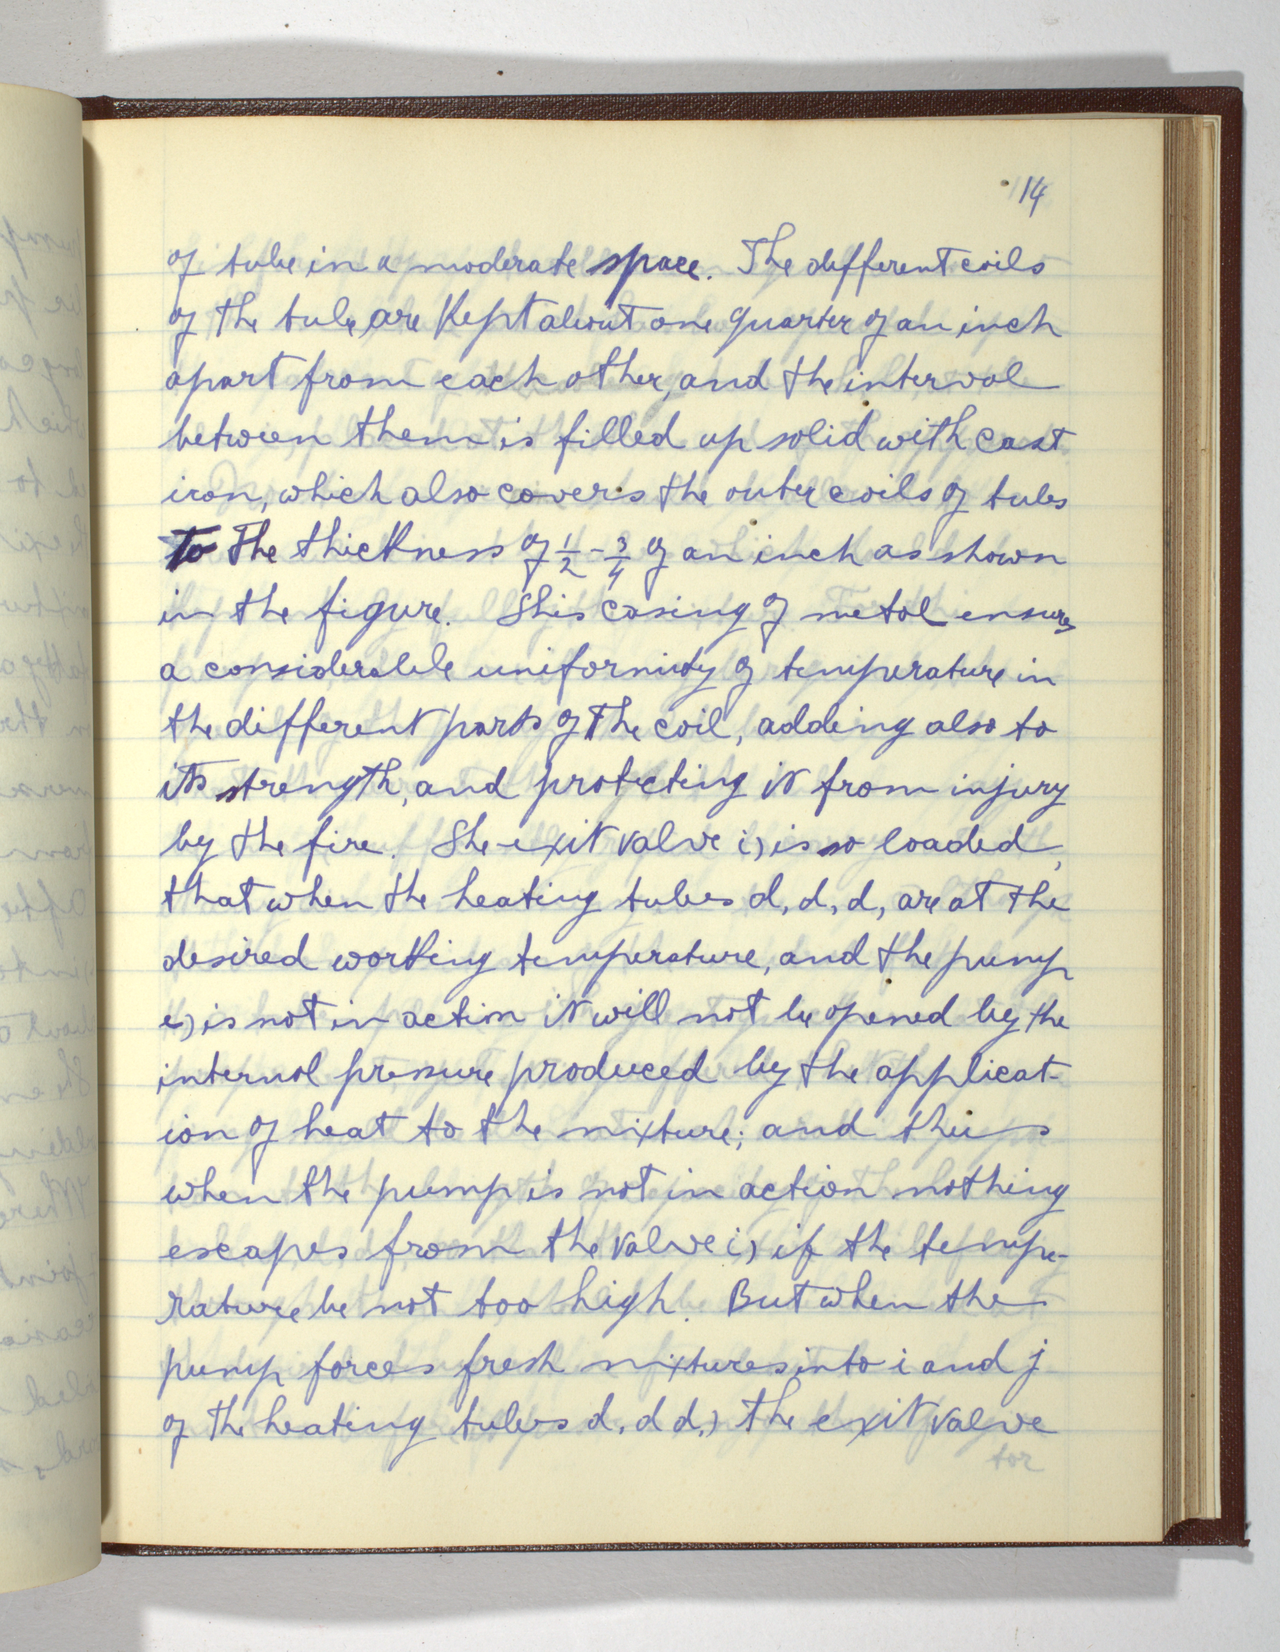 14
of tube in a moderate space. The different coils
of the tube are kept about one quarter of an inch
apart from each other, and the interval
between them is filled up solid with cast
iron, which also covers the outer coils of tubes
To the thickness of 1/2 - 3/4 of an inch as shown
in the figure. This casing of metal ensures
a considerable uniformity of temperature in
the different parts of the coil, adding also to
its strength, and protecting it from injury
by the fire. The exit valve i) is so loaded,
that when the heating tubes d, d, d, are at the
desired working temperature, and the pump
e) is not in action it will not be opened by the
internal pressure produced by the applicat-
ion of heat to the mixture; and thus
when the pump is not in action nothing
escapes from the valve i) if the tempe-
rature be not too high. But when the
pump forces fresh mixtures into i and j
of the heating tubes d, d d,) the exit valve